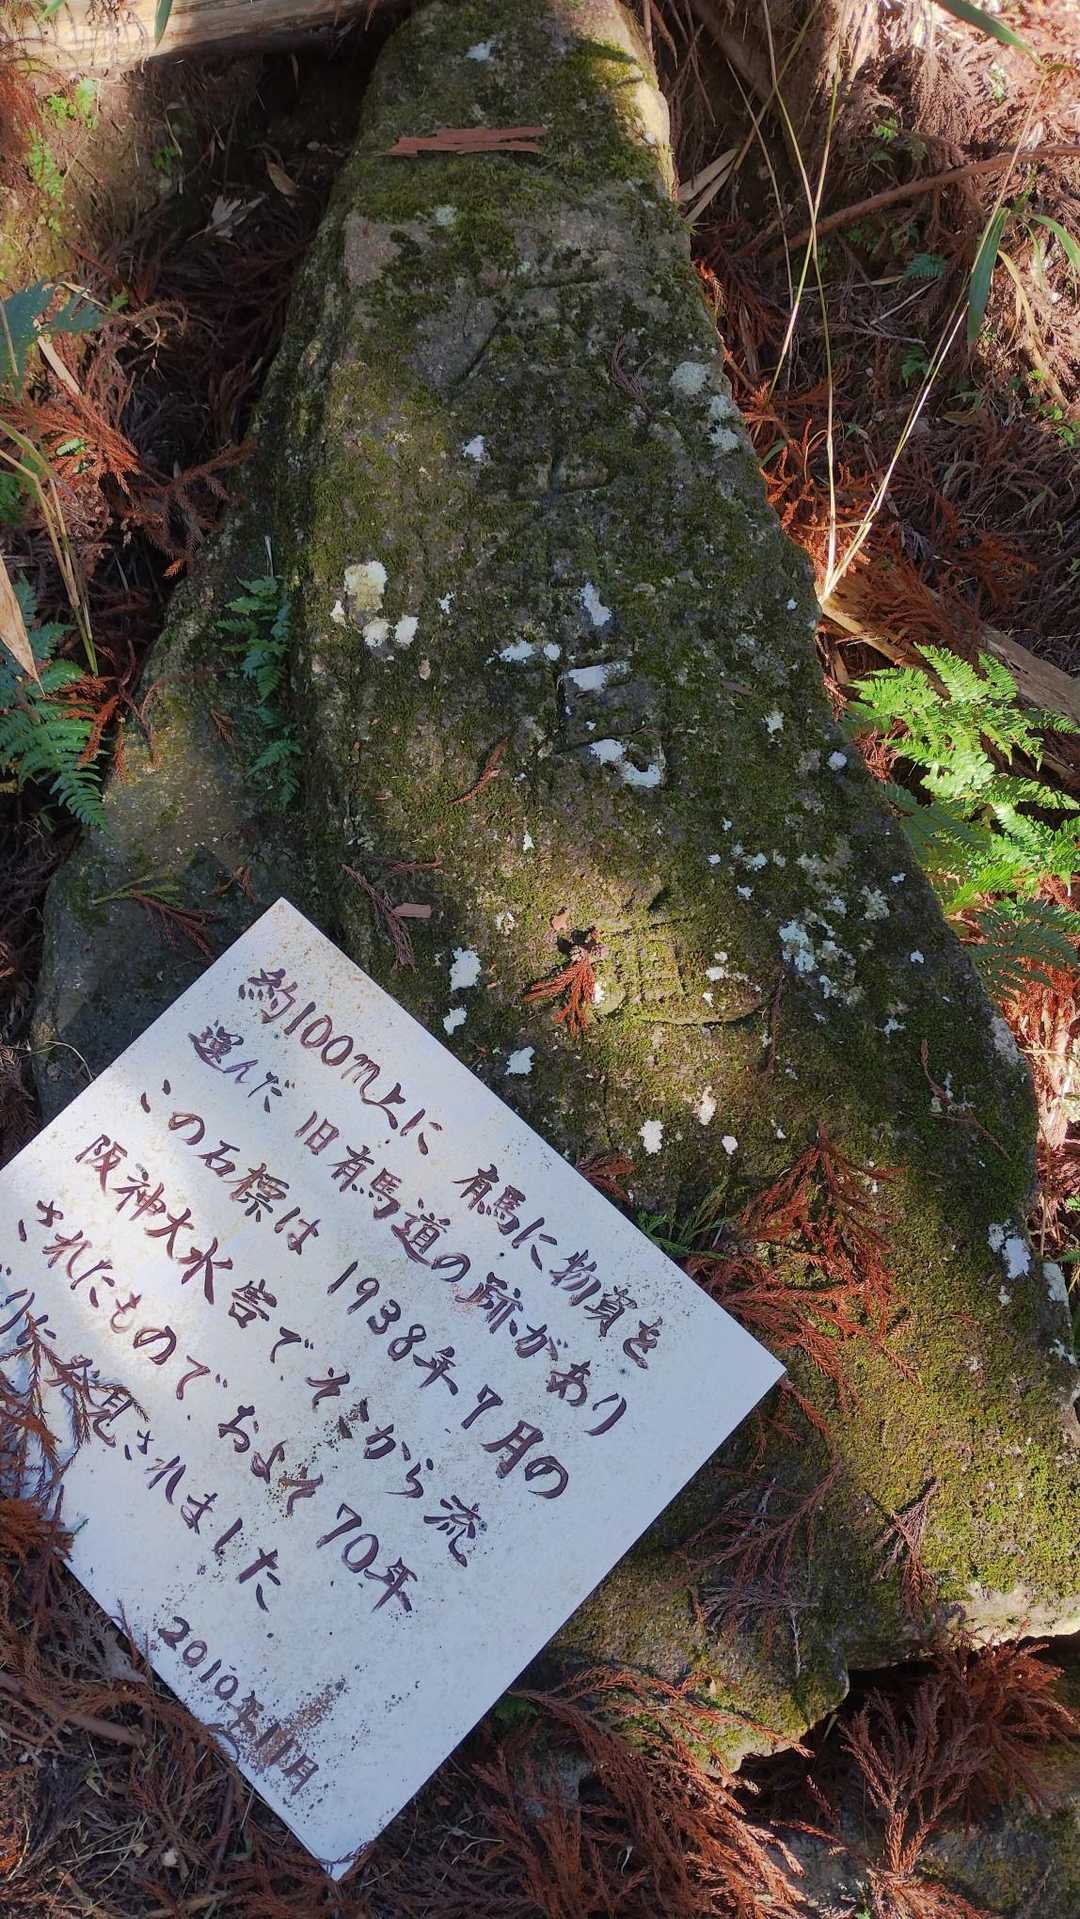 約100m上に 有馬に物資を
運んだ 旧有馬道の跡があり
、の石標は 1938年7月の
阪神大水害でそこから流
されたもので およそ70年
ぶりに発見されました
2010年11月